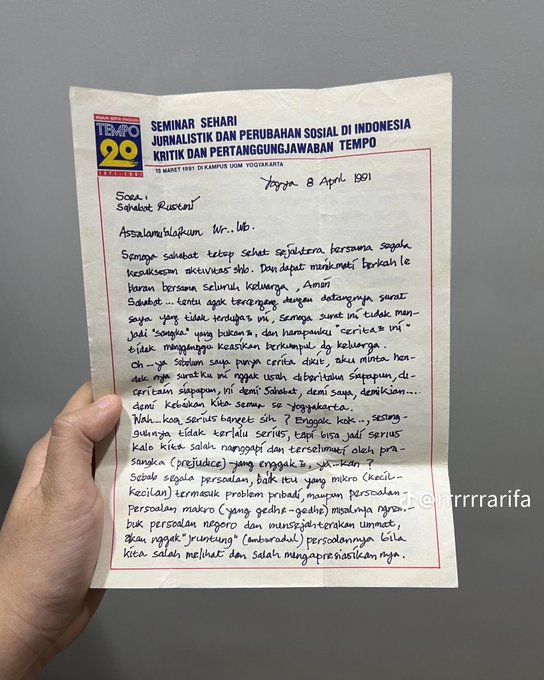 TEMPO
20
1971-1991
SEMINAR SEHARI
JURNALISTIK DAN PERUBAHAN SOSIAL DI INDONESIA
KRITIK DAN PERTANGGUNGJAWABAN TEMPO
13 MARET 1991 DI KAMPUS UGM YOGYAKARTA
Yogya 8 April 1991
Sdra:
Sahabat Rustini
Assalamu'alaikum Wr.. Wb.
Semoga sahabat tetep sehat sejahtera bersama segala
kesuksesan aktivitas shb. Dan dapat menikmati berkah le
baran bersama seluruh keluarga, Amin
Sahabat... tentu agak tercengang dengan datangnya surat
saya yang tidak terduga2 ini, semoga surat ini tidak men-
jadi "sangka" yang bukan2, dan harapanku "cerita2 ini"
tidak mengganggu keasikan berkumpul dg keluarga.
Oh... ya sebelum saya punya cerita dikit, aku minta hen-
dak nya suratku ini nggak usah diberitahu siapapun, di-
ceritain siapapun, ini demi sahabat, demi saya, demikian...
demi kebaikan kita semua se yogyakarta.
Wah... koq serius banget sih? Enggak kok.., sesung-
guhnya tidak terlalu serius, tapi bisa jadi serius
kalo kita salah nanggapi dan terselimuti oleh pra-
sangka (prejudice) yang enggak2, ya..kan?
Sebab segala persoalan, baik itu yang mikro (kecil-
kecilan) termasuk problem pribadi, maupun persoalan
persoalan makro (yang gedhe-gedhe) misalnya
buk persoalan negoro dan mensejahterakan ummat,
akan nggak "jruntung" (amburadul) persoalannya bila
kita salah melihat dan salah mengapresiasikan nya.
@rrrrrrarifa